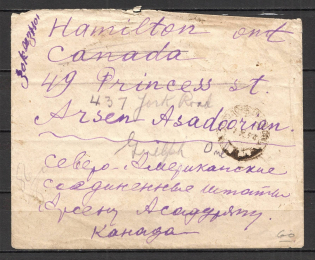 Заказное
Hamilton ont
Canada
49 Princess st.
437 York Road
Arsen Asadoorian.
Guelph Ont
Северо-Американские
Соединенные штаты
Арсену Асадуряну.
Канада